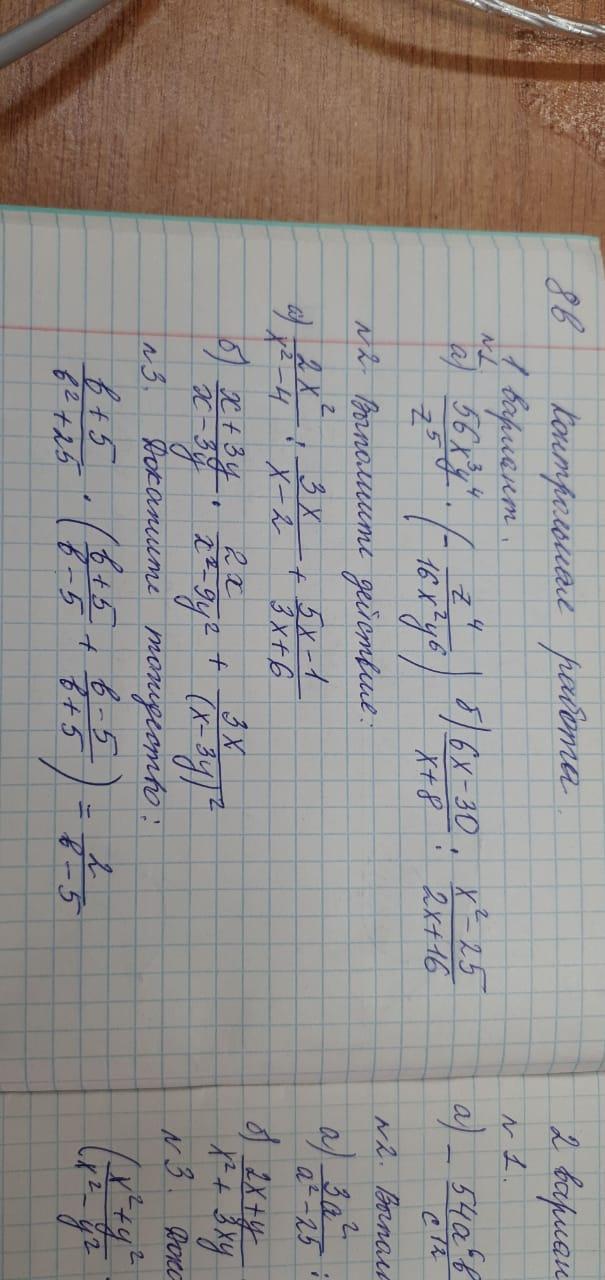 8в Контрольная работа.
1 вариант.
№1.
а) 56x³y⁴/z⁵ · (- z⁴/16x²y⁶) б) 6x-30/x+8 : x²-25/2x+16
№2. Выполните действие:
а) 2x²/x²-4 : 3x/x-2 + 5x-1/3x+6
б) x+3y/x-3y · 2x/x²-9y² + 3x/(x-3y)²
№3. Докажите тождество:
b+5/b²+25 · (b+5/b-5 + b-5/b+5) = 2/b-5
2 вариан
№1.
а) - 54a⁶b/c¹²
№2. Выпол
а) 3a²/a²-25 :
б) 2x+y/x²+3xy
№3. Дока
(x²+y²/x²-y²